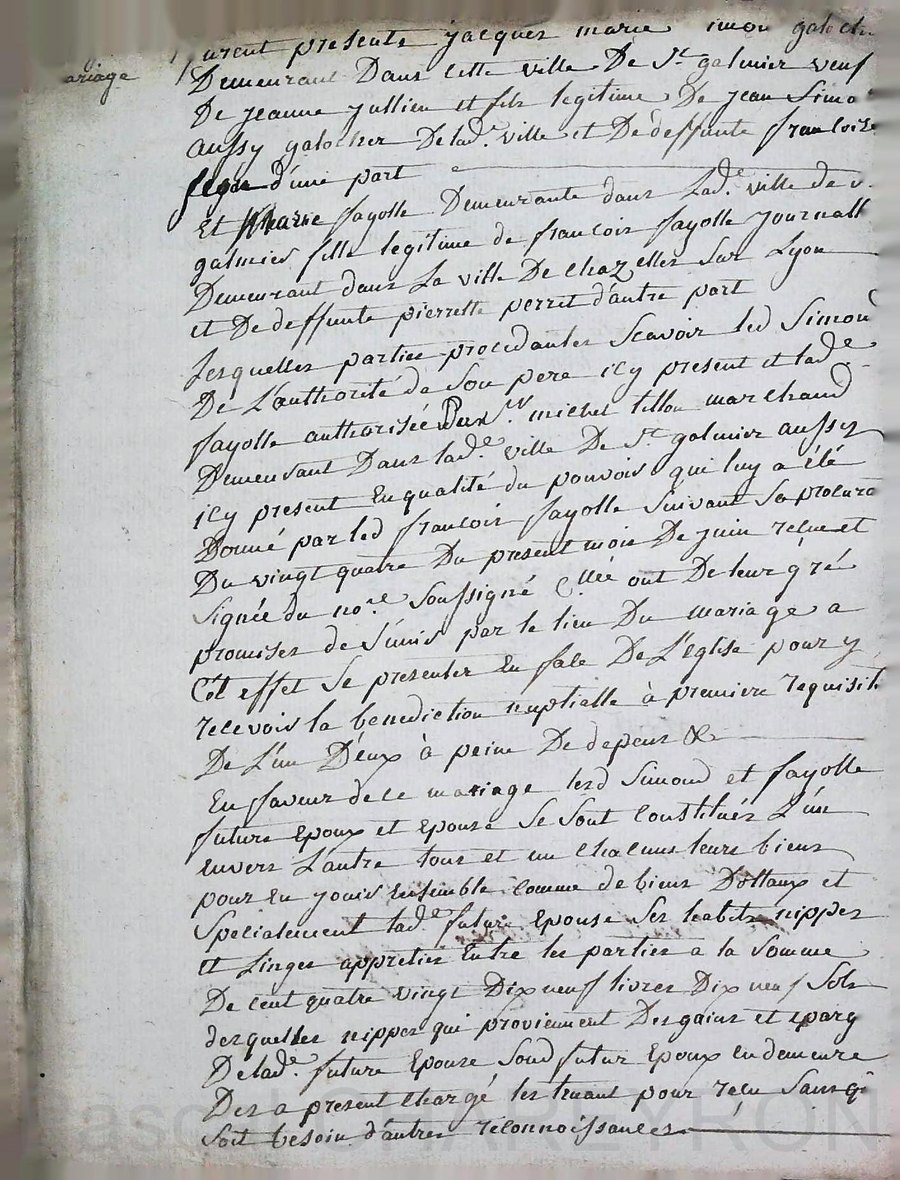 ariage
furent presents jacques marie imon galoch
Demeurant Dans cette ville De St galmier veuf
De jeanne jullien et fils legitime De jean Simo
aussy galocher De lad.e ville et De deffunte francoise
d'une part
Et Marie fayolle Demeurante dans Lad.e ville de
galmier fille legitime de francois fayolle journall
Demeurant dans La ville De chazelles sur Lyon
et De deffunte pierrette perret d'autre part
Lesquelles parties procedantes Scavoir led Simond
De L'authorité de Son pere icy present et lad.e
fayolle authorisée Par Sr. michel tillon marchand
Demeurant Dans lad.e ville De St galmier aussy
icy present En qualité du pouvoir qui luy a été
Donné par led francois fayolle Suivant Sa procura
Du vingt quatre Du present mois De juin recue et
Signée du no.re Soussigné ont De leur gré
promises de S'unir par le lien Du mariage a
Cet effet Se presenter En face De L'église pour y
recevoir la benediction nuptialle à premiere requisit
De L'un D'eux à peine De depens &
En faveur de ce mariage lesd Simond et fayolle
futurs Epoux et Epouse Se Sont Constitués L'un
Envers L'autre tous et un chacuns leurs biens
pour En jouir Ensemble comme de biens Dottaux et
Specialement lad.e future Epouse Ses habits nippes
et Linges apprétiés Entre les parties a la Somme
De cent quatre vingt Dix neuf livres Dix neuf Sols
desquelles nippes qui proviennent Des gains et eparg
De lad.e future Epouse Sond futur Epoux en demeure
Des a present chargé les tenant pour recu Sans q
Soit besoin d'autres reconnoissances
Pascal CHAREYRON